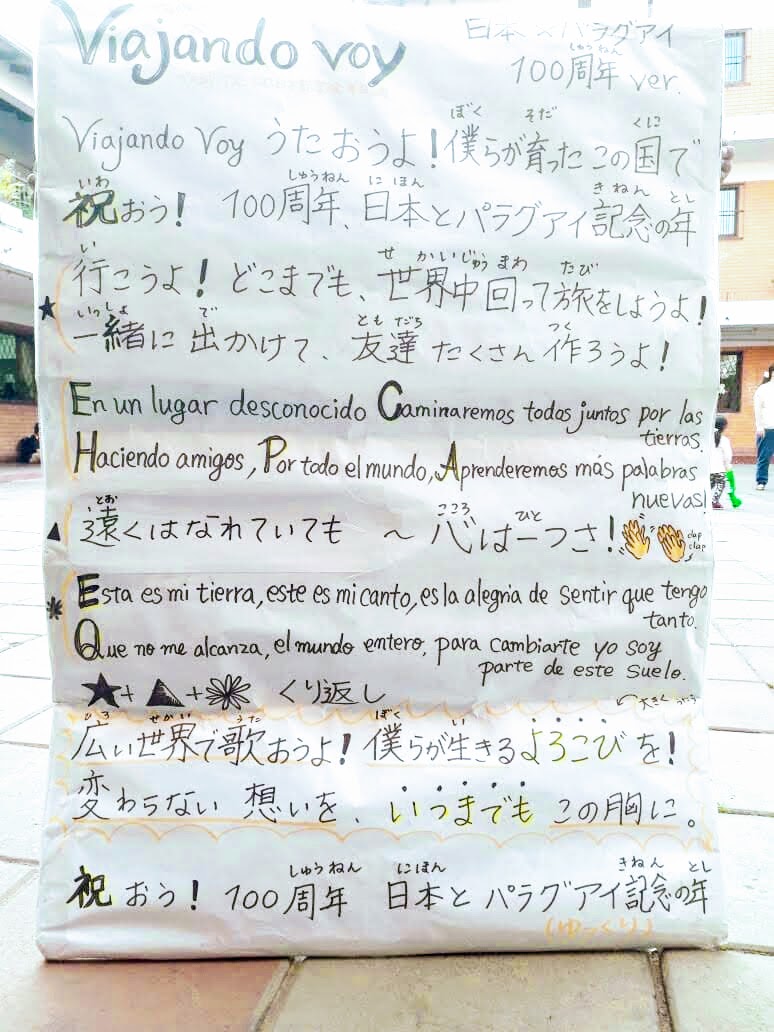 Viajando voy
日本 ⇄ パラグアイ
しゅうねん
100周年 ver.
ぼく そだ くに
Viajando Voy うたおうよ！僕らが育ったこの国で
いわ しゅうねん に ほん きねん とし
祝おう！ 100周年、日本とパラグアイ記念の年
い せ かいじゅう まわ たび
行こうよ！どこまでも、世界中回って旅をしようよ！
いっしょ で とも だち つく
★ 一緒に 出かけて、友達 たくさん 作ろうよ！
En un lugar desconocido Caminaremos todos juntos por las
tierras.
Haciendo amigos, Por todo el mundo, Aprenderemos más palabras
nuevas!
とお こころ ひと
▲ 遠くはなれていても ～ 心は一つさ！
clap
clap
Esta es mi tierra, este es mi canto, es la alegria de sentir que tengo
tanto.
Que no me alcanza, el mundo entero, para cambiarte yo soy
parte de este suelo.
★+▲+ くり返し
大きく
ひろ せかい うた ぼく い
広い世界で歌おうよ！僕らが生きるよろこびを！
変わらない 想いを、いつまでも この胸に。
しゅうねん にほん きねん とし
祝おう！ 100周年 日本と パラグアイ記念の年
(ゆっくり)